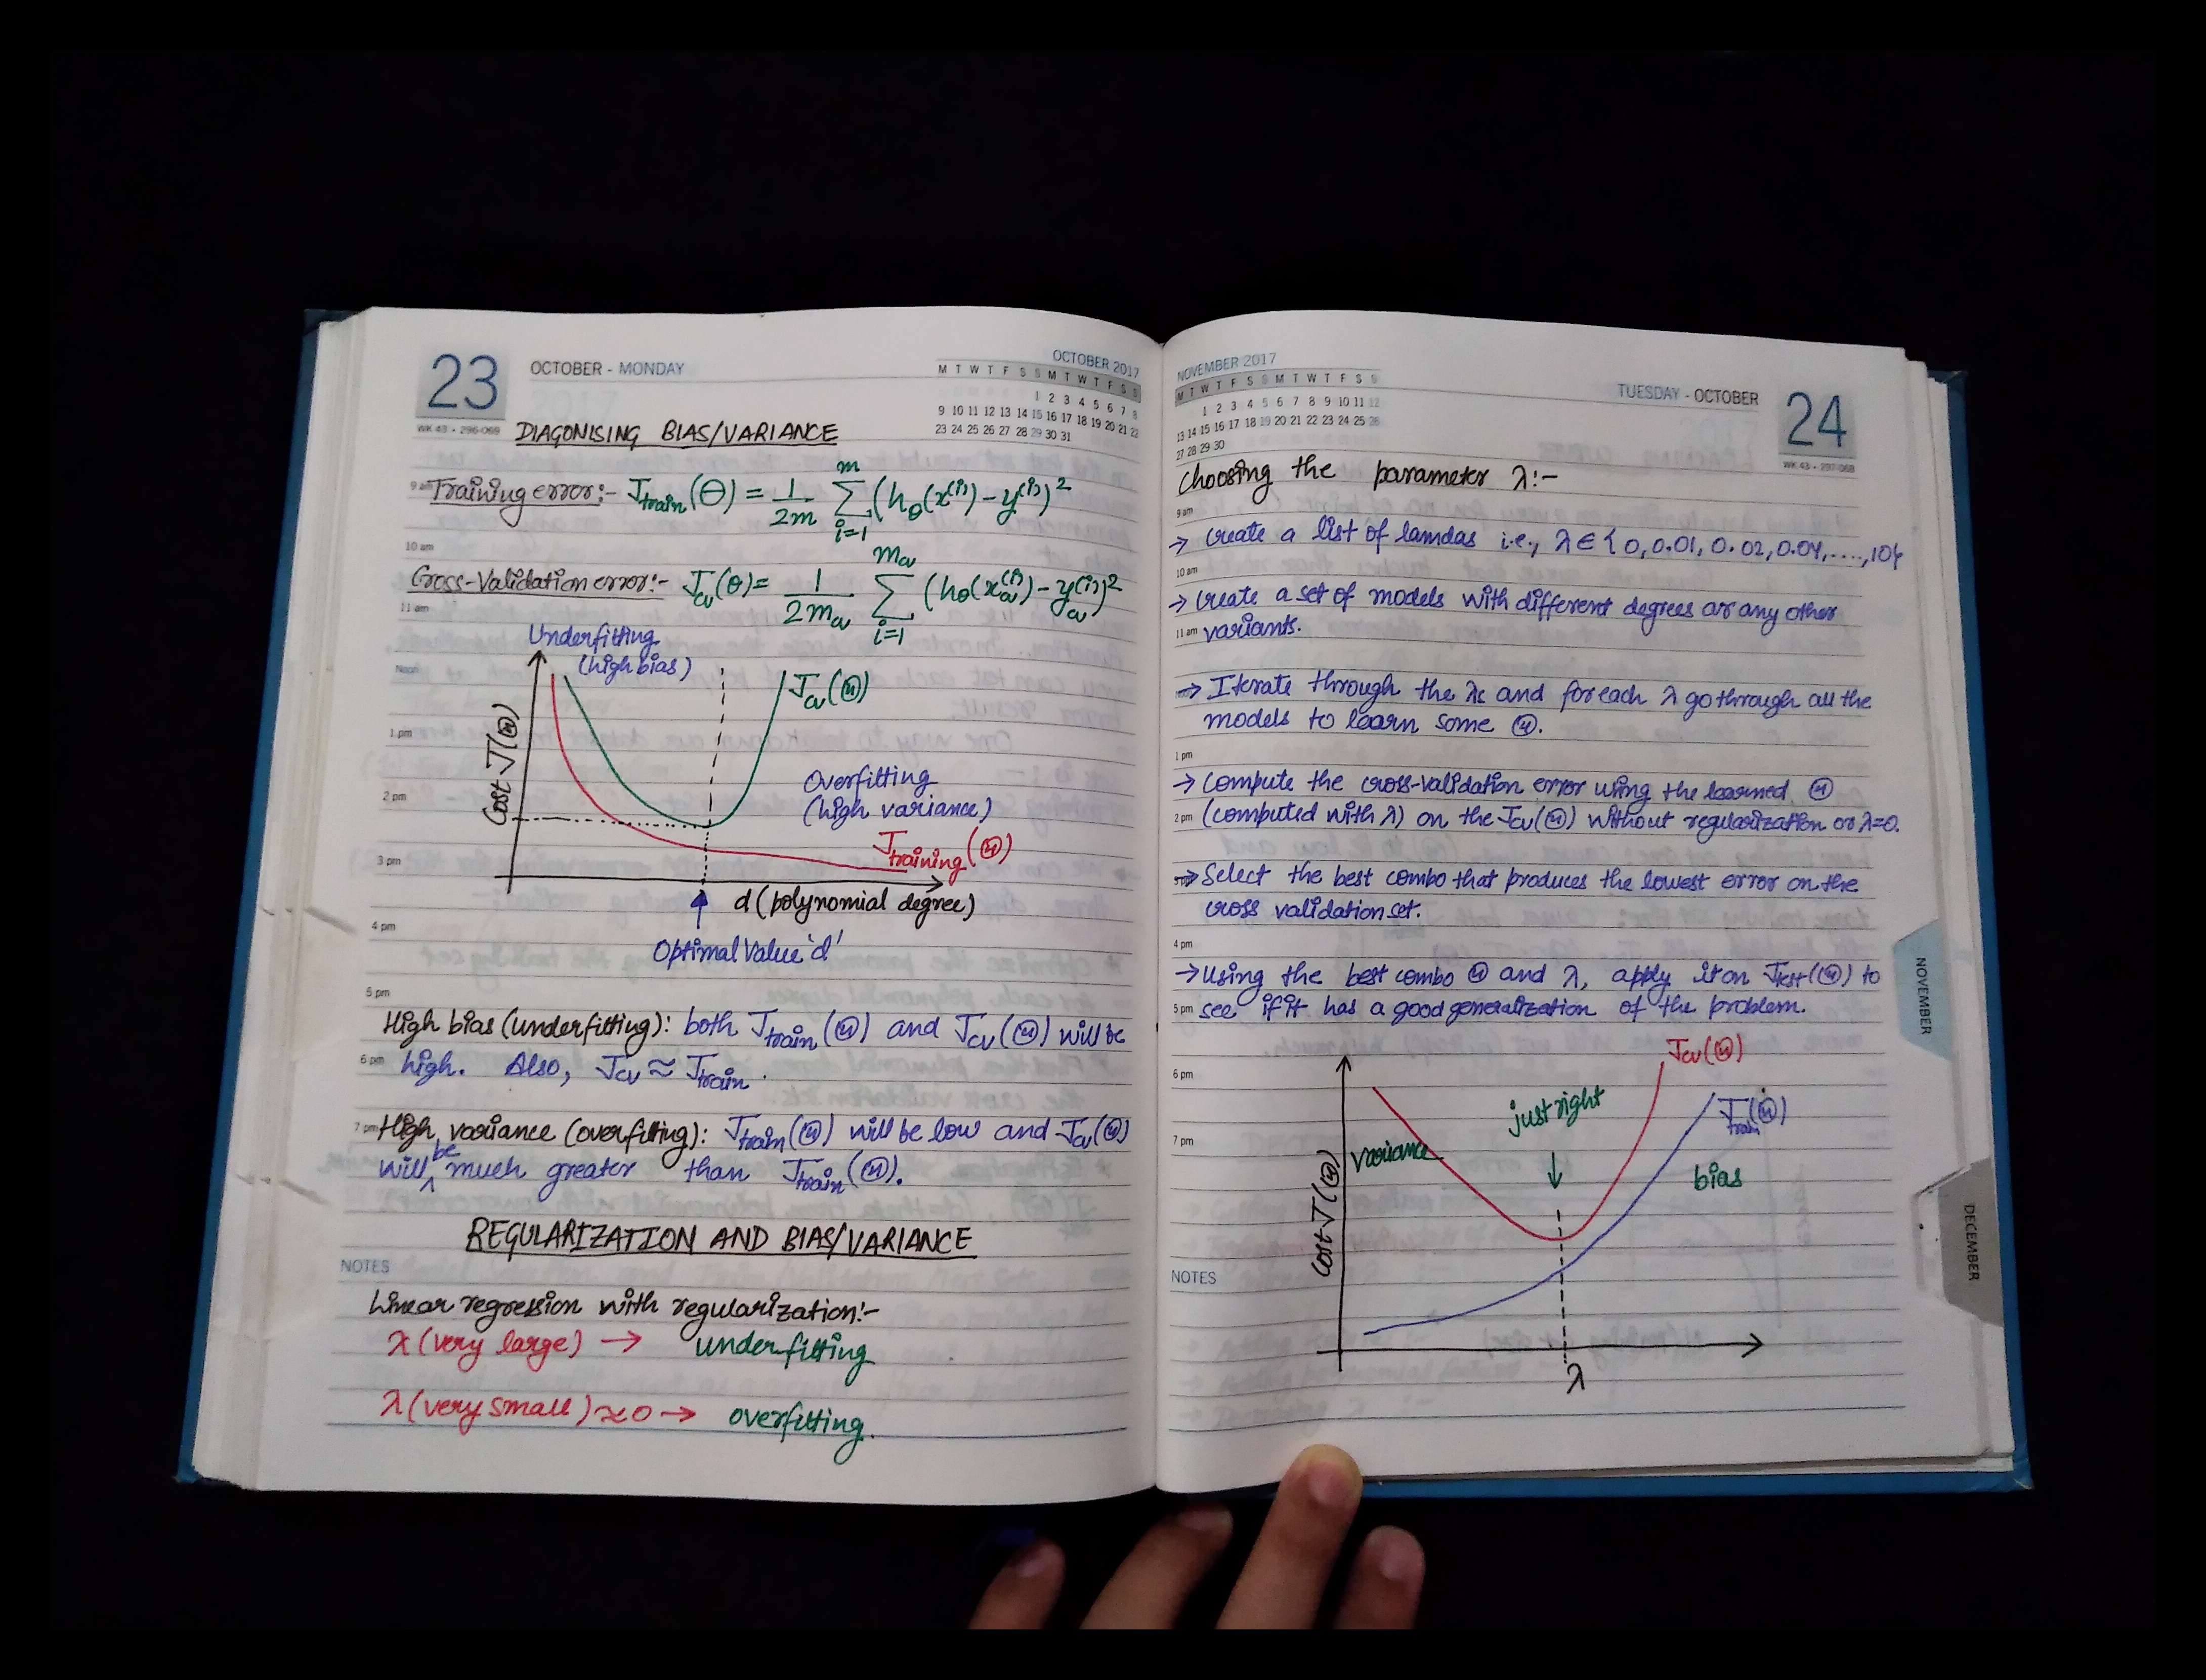 23
OCTOBER - MONDAY
WK 43 • 296-069
OCTOBER 2017
M T W T F S S M T W T F S S
1 2 3 4 5 6 7 8
9 10 11 12 13 14 15 16 17 18 19 20 21 22
23 24 25 26 27 28 29 30 31
DIAGONISING BIAS/VARIANCE
9 am
Training error:- J_train(Θ) = 1/2m Σ_{i=1}^{m} (h_θ(x^(i)) - y^(i))^2
10 am
Cross-Validation error:- J_cv(θ) = 1/2m_cv Σ_{i=1}^{m_cv} (h_θ(x_cv^(i)) - y_cv^(i))^2
11 am
Underfitting
(high bias)
Noon
J_cv(Θ)
Cost J(Θ)
1 pm
Overfitting
2 pm
(high variance)
J_training(Θ)
3 pm
d (polynomial degree)
4 pm
Optimal Value 'd'
5 pm
High bias (underfitting): both J_train(Θ) and J_cv(Θ) will be
6 pm
high. Also, J_cv ≈ J_train.
7 pm
High variance (overfitting): J_train(Θ) will be low and J_cv(Θ)
will be much greater than J_train(Θ).
REGULARIZATION AND BIAS/VARIANCE
NOTES
Linear regression with regularization:-
λ (very large) → underfitting
λ (very small) ≈ 0 → overfitting.
NOVEMBER 2017
M T W T F S S M T W T F S S
1 2 3 4 5 6 7 8 9 10 11 12
13 14 15 16 17 18 19 20 21 22 23 24 25 26
27 28 29 30
TUESDAY - OCTOBER
24
WK 43 • 297-068
Choosing the parameter λ:-
9 am
→ Create a list of lamdas i.e., λ ∈ {0, 0.01, 0.02, 0.04, ...., 10}
10 am
→ Create a set of models with different degrees or any other
11 am
variants.
→ Iterate through the λs and for each λ go through all the
models to learn some Θ.
1 pm
→ Compute the cross-validation error using the learned Θ
2 pm
(computed with λ) on the J_cv(Θ) without regularization or λ=0.
→ Select the best combo that produces the lowest error on the
cross validation set.
4 pm
→ Using the best combo Θ and λ, apply it on J_test(Θ) to
5 pm
see if it has a good generalization of the problem.
J_cv(Θ)
6 pm
just right
J_train(Θ)
7 pm
variance
bias
Cost J(Θ)
NOTES
λ
NOVEMBER
DECEMBER